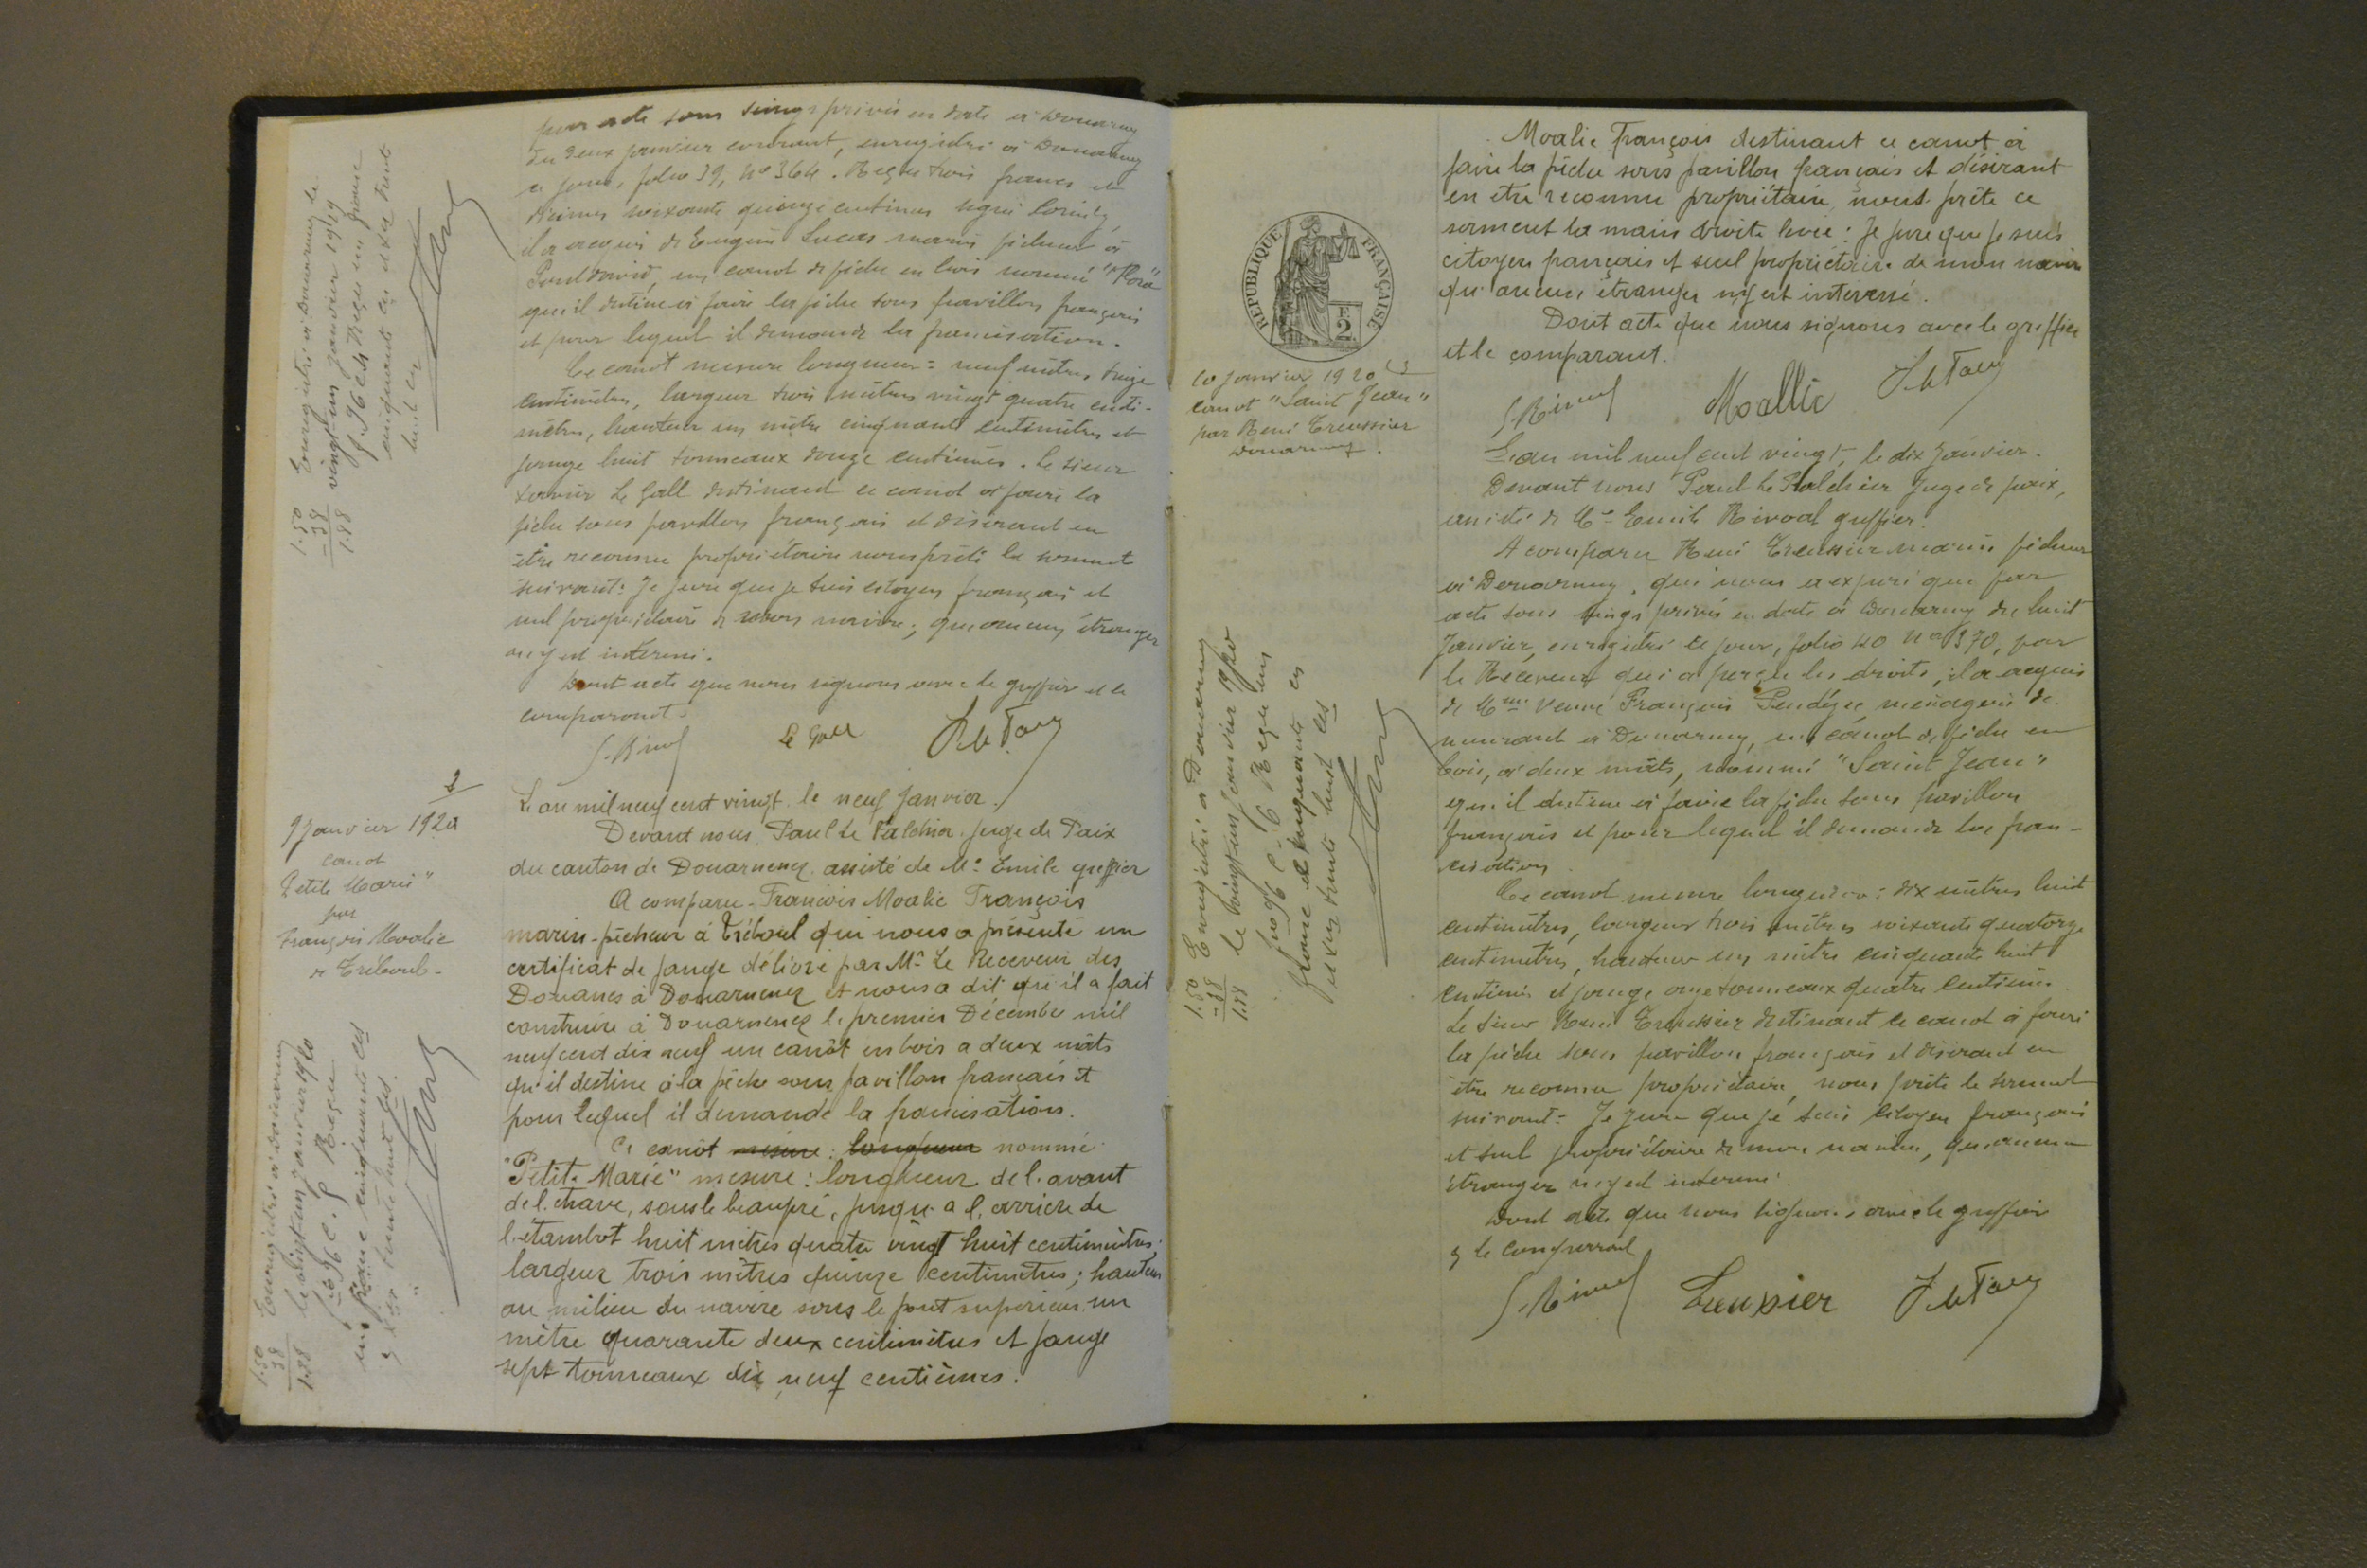 par acte sous seings privés en date à Douarnenez
du deux janvier courant, enregistré à Douarnenez
ce jour, folio 39, No 364. Reçu trois francs et
décimes soixante quinze centimes signé
il a acquis de Eugène Lucas marin pêcheur à
Pouldavid, un canot de pêche en bois nommé
qu'il destine à faire la pêche sous pavillon français
et pour lequel il demande la francisation.
Ce canot mesure longueur: neuf mètres treize
centimètres, largeur trois mètres vingt quatre centi-
mètres, hauteur un mètre cinquante centimètres et
jauge huit tonneaux douze centièmes. Le sieur
Le Gall destinant ce canot à faire la
pêche sous pavillon français et désirant en
être reconnu propriétaire nous prête le serment
suivant: Je jure que je suis citoyen français et
seul propriétaire de mon navire; qu'aucun étranger
n'y est intéressé.
Dont acte que nous signons avec le greffier et le
comparant.
Le Gall
Enregistré à Douarnenez le
vingt-un janvier 19
f. 96 c. Reçu un franc
cinquante ces deux trente
huit ces
1.50
- 38
1.88
2
9 Janvier 1920
canot
Petite Marie"
par
François Moalic
à Tréboul -
L'an mil neuf cent vingt. le neuf Janvier.
Devant nous Paul Le Palchier. juge de Paix
du canton de Douarnenez. assisté de Me Emile greffier
A comparu - François Moalic François
marin-pêcheur à Tréboul qui nous a présenté un
certificat de jauge délivré par Mr Le Receveur des
Douanes à Douarnenez et nous a dit qu'il a fait
construire à Douarnenez le premier Décembre mil
neuf cent dix neuf un canôt en bois a deux mâts
qu'il destine à la pêche sous pavillon français et
pour lequel il demande la francisation.
Ce canôt mesure: longueur nommé
"Petit. Marie" mesure: longueur de l'avant
de l'étrave, sous le beaupré, jusqu'a l'arrière de
l'étambot huit mètres quatre vingt huit centimètres;
largeur trois mètres quinze centimètres; hauteur
au milieu du navire sous le pont supérieur un
mètre quarante deux centimètres et jauge
sept tonneaux dix neuf centièmes.
Enregistré à Douarnenez
le vingt un janvier 1920
fo 96 c. Reçu
un franc cinquante ces
trente huit ces.
1.50
38
1.88
REPUBLIQUE FRANÇAISE
F.
2.
10 janvier 1920 3
canot "Saint Jean"
par René Treussier
Douarnenez.
Enregistré à Douarnenez
le vingt un janvier 1920
fo 96 c. 6 Reçu un
franc cinquante ces
trente huit ces
1.50
- 38
1.88
Moalic François destinant ce canot à
faire la pêche sous pavillon français et désirant
en être reconnu propriétaire, nous prête ce
serment la main droite levée: Je jure que je suis
citoyen français et seul propriétaire de mon navire
qu'aucun étranger n'y est intéressé.
Dont acte que nous signons avec le greffier
et le comparant.
Moallic
L'an mil neuf cent vingt, le dix Janvier.
Devant nous Paul Le Palchier juge de paix,
assisté de Me Emile Rivoal greffier.
A comparu René Treussier marin pêcheur
à Douarnenez, qui nous a exposé que par
acte sous seings privés en date à Douarnenez du huit
Janvier, enregistré ce jour, folio 40 No 370, par
le Receveur qui a perçu les droits, il a acquis
de Mme Veuve François Pendézec ménagère de-
meurant à Douarnenez, un canot de pêche en
bois, à deux mâts, nommé "Saint Jean"
qu'il destine à faire la pêche sous pavillon
français et pour lequel il demande la fran-
cisation
Ce canot mesure longueur: dix mètres huit
centimètres, largeur trois mètres soixante quatorze
centimètres, hauteur un mètre cinquante huit
centimes et jauge onze tonneaux quatre centièmes.
Le sieur René Treussier destinant ce canot à faire
la pêche sous pavillon français et désirant en
être reconnu propriétaire, nous prête le serment
suivant: Je jure que je suis citoyen français
et seul propriétaire de mon navire, qu'aucun
étranger n'y est intéressé.
Dont acte que nous signons avec le greffier
& le comparant
Treussier